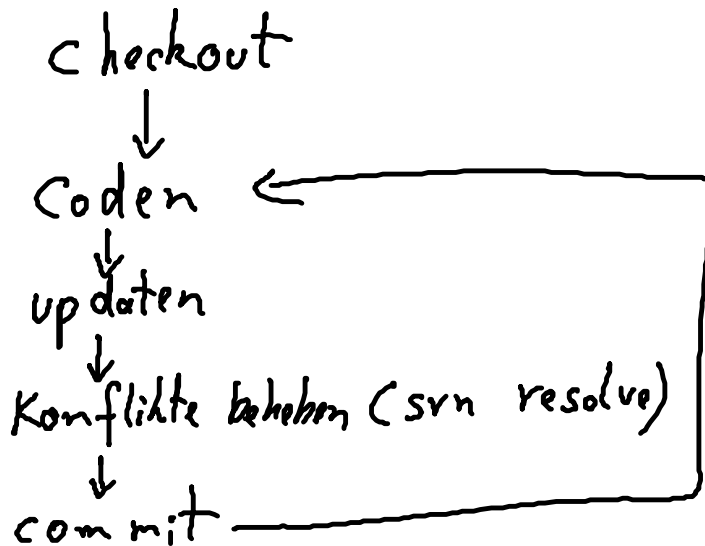 checkout
Coden
updaten
Konflikte beheben (svn resolve)
commit